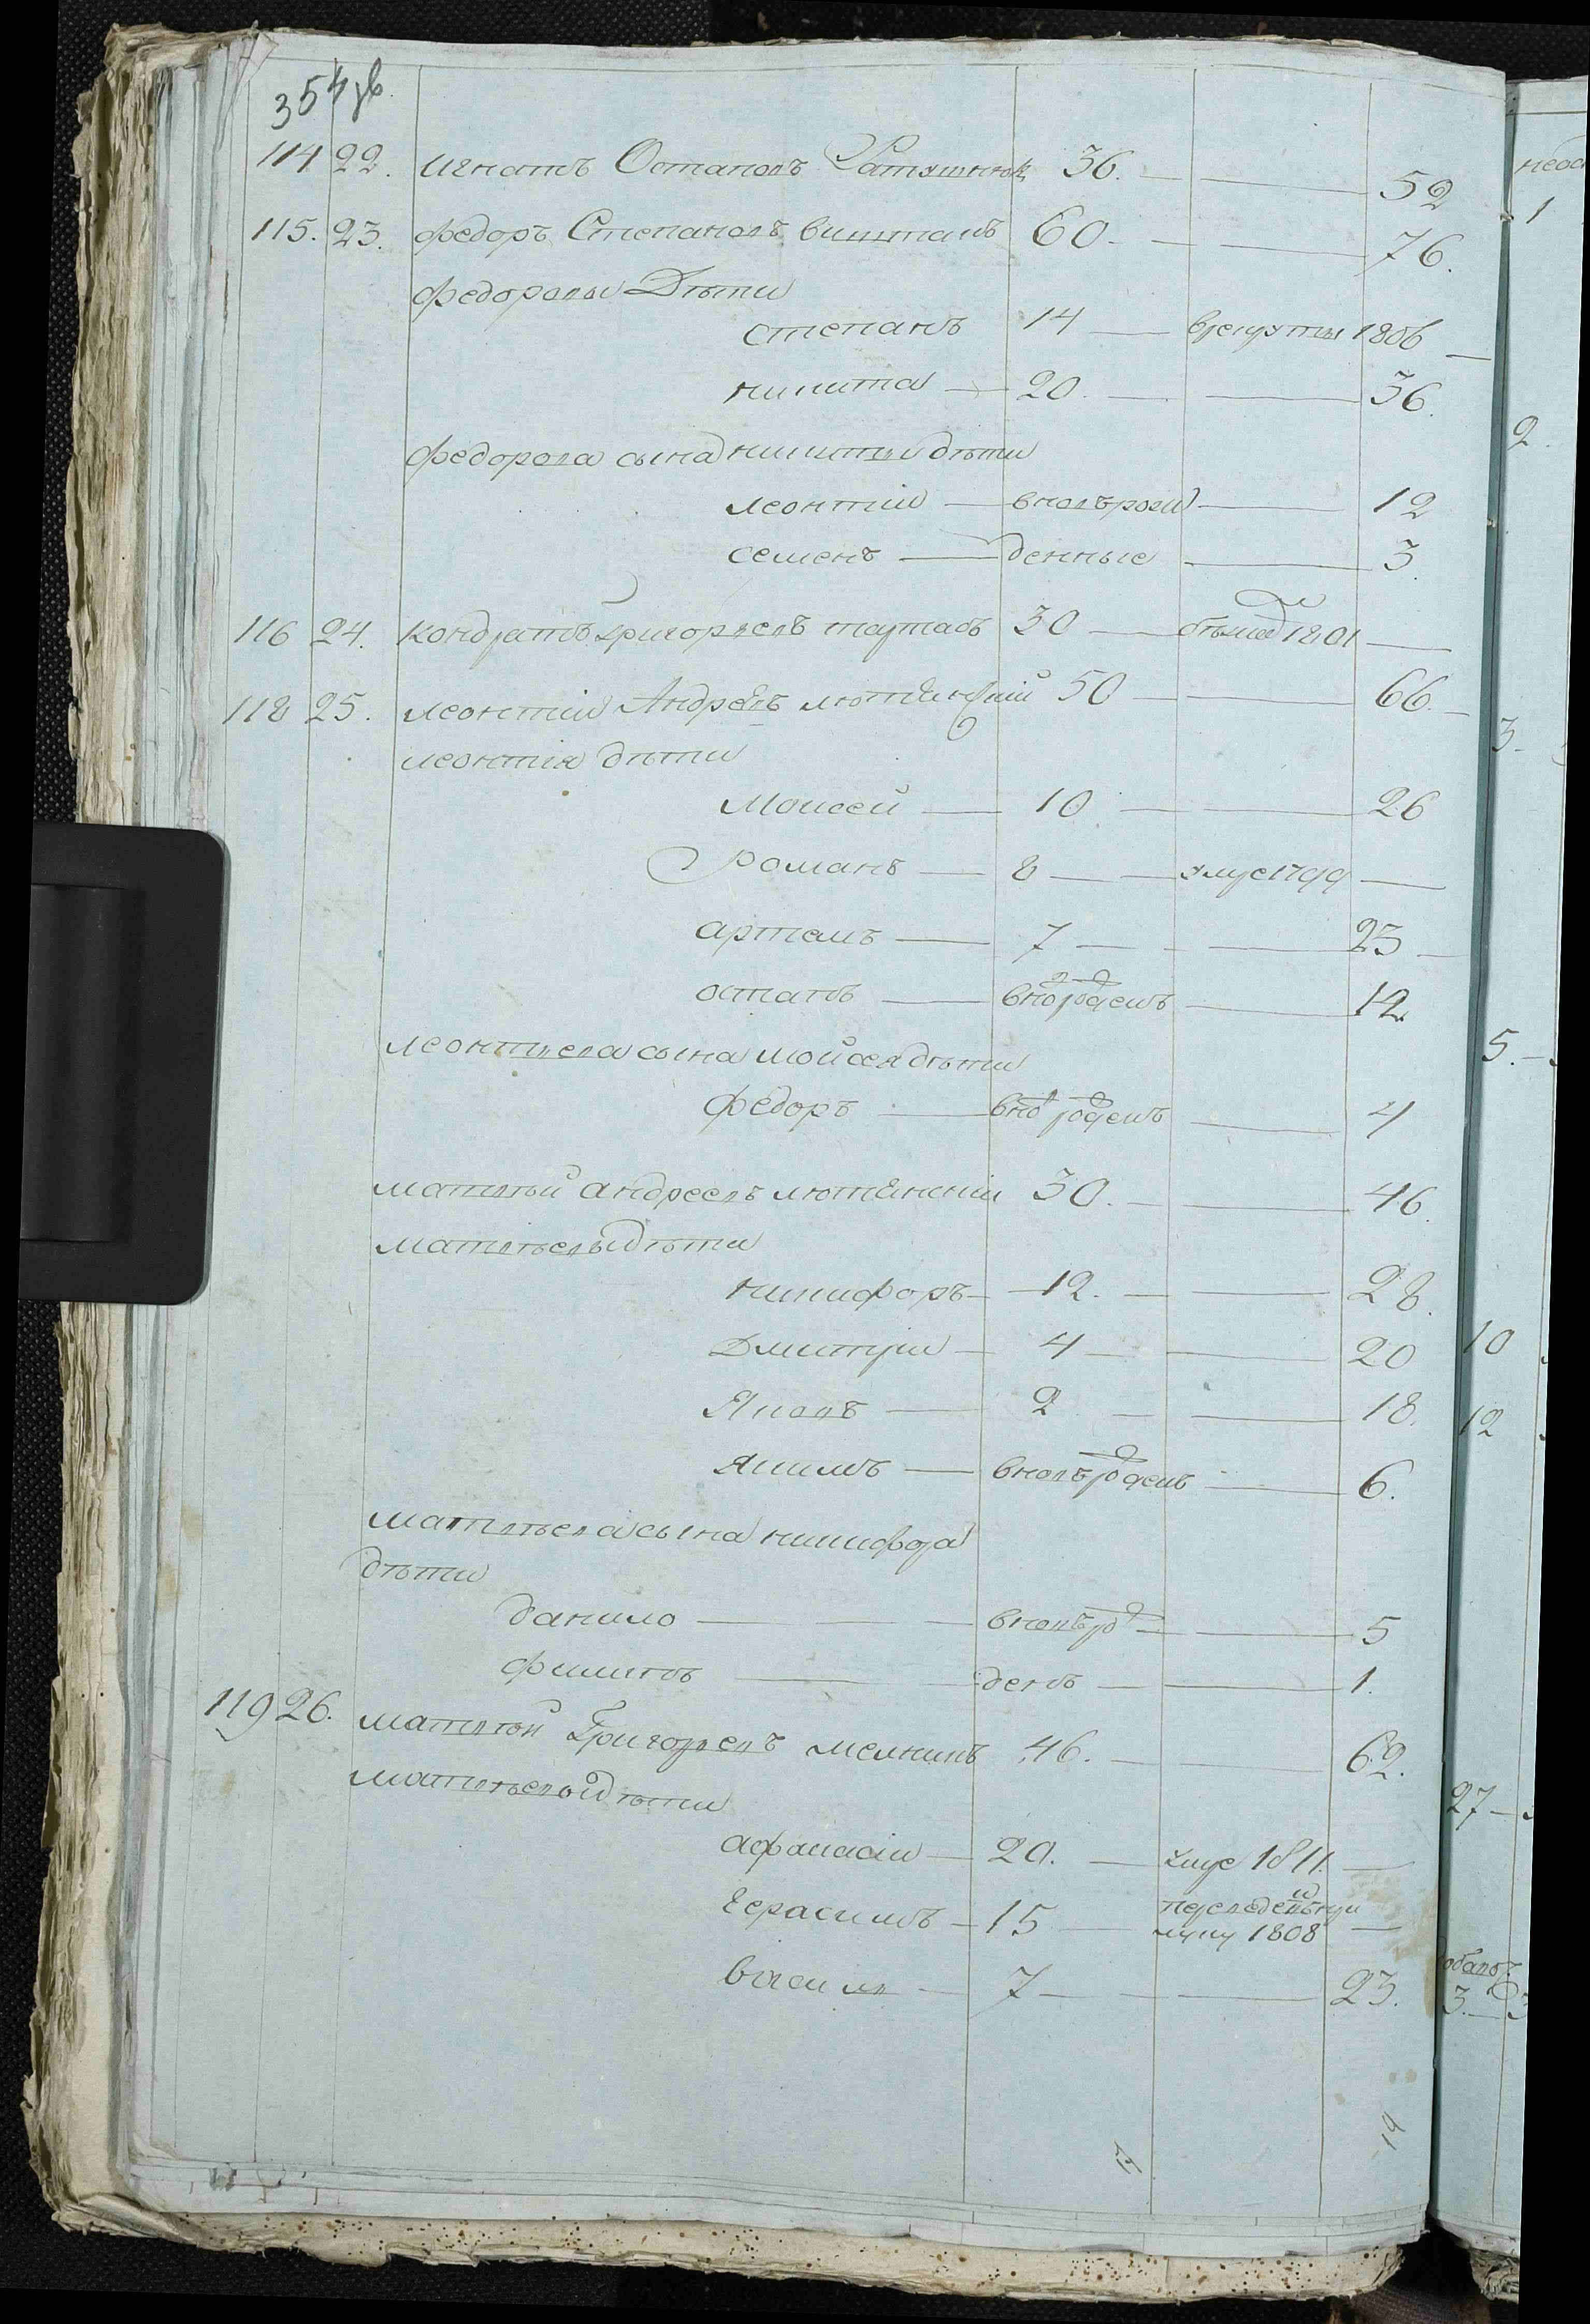 354 об.
114 22. Игнатъ Остаповъ 36. 52
115. 23. федоръ Степановъ 60. 76.
федоровы Дѣти
степанъ 14 врекруты 1806
никита 20. 36.
федорова сына никиты дѣти
леонтій вновь рож 12
семенъ денные 3.
116 24. Кондратъ Григорьевъ 30 1801
118 25. леонтій Андреевъ лютинскій 50 66.
леонтія дѣти
Моисей 10 26
Романъ 8 умре 1799
артемъ 7 23
остапъ внов рожденъ 12
леонтьева сына мойсея дѣти
федоръ внов рожденъ 4
матвѣй андреевъ лютинскій 30. 46.
матвѣевы дѣти
никифоръ 12. 28.
Дмитри 4 20
Яковъ 2 18.
якимъ вновь рожденъ 6.
матвѣева сына никифора
дѣти
данило вновь рож 5
филипъ денъ 1.
119 26. матвѣй Григорьевъ мелникъ 46. 62.
матвѣевы дѣти
афанасій 20. умре 1811.
Герасимъ 15 1808
васил 7 23.
17 19